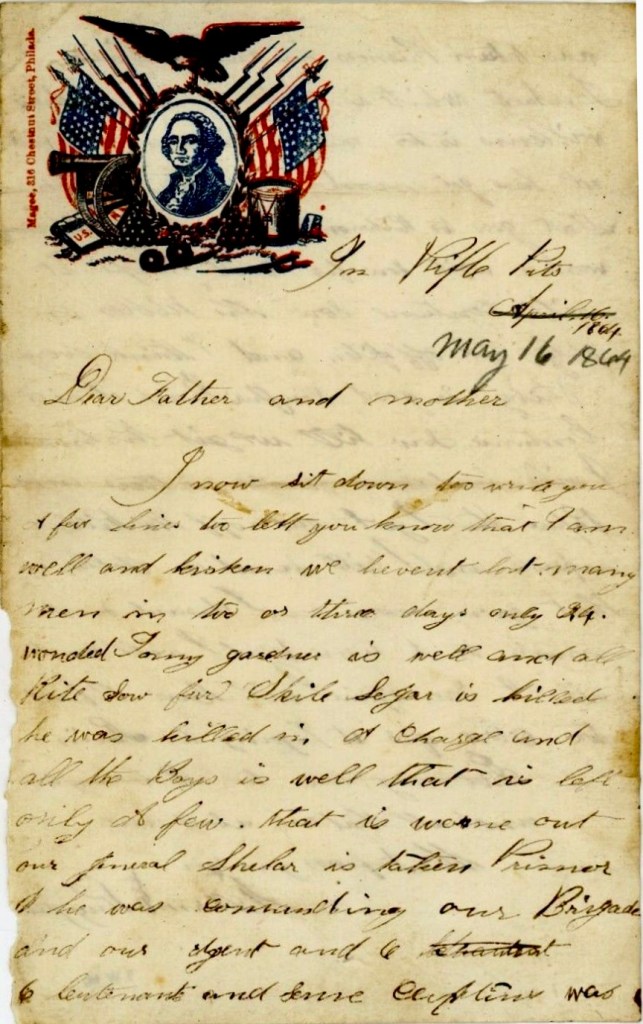 Magee, 316 Chestnut Street, Philada.
U.S.
In Rifle Pits
April 16, 1864
May 16 1864
Dear Father and mother
I now sit down too write you
A few lines to lett you know that I am
well and kicken we hevent lost many
men in too or three days only 24.
wonded Tomy gardner is well and all
Rite Sow fur Skile Segar is killed
he was killed in A charge and
all the Boys is well that is left
only A few. that is worne out
our general Shelar is taken Prisnor
he was comanding our Brigade
and our and 6
6 leutenants and some captins was